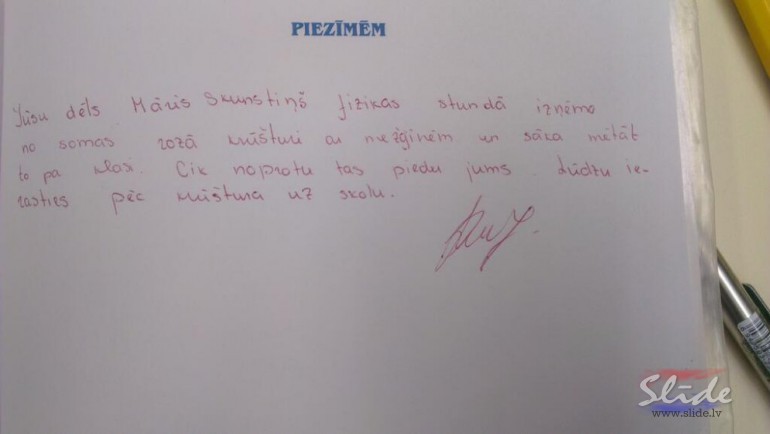 PIEZĪMĒM
Jūsu dēls Māris Skunstiņš fizikas stundā izņēma
no somas rozā krūšturi ar mežģinēm un sāka mētāt
to pa klasi. Cik noprotu tas pieder jums. Lūdzu ie-
rasties pēc krūštura uz skolu.
Slīde
www.slide.lv